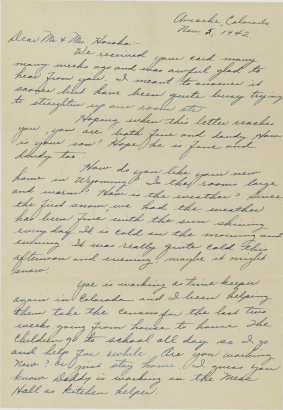 Amache, Colorado
Nov. 5, 1942
Dear Mr & Mrs. Hosaka -
We received your card many
many weeks ago and was awful glad to
hear from you. I meant to answer it
sooner but have been quite busy trying
to straighten up our room etc.
Hoping when this letter reaches
you, you are both fine and dandy. How
is your son? Hope he is fine and
dandy too.
How do you like your new
home in Wyoming? Is the rooms large
and warm? How is the weather? Since
the first snow, we had the weather
has been fine with the sun shining
every day. It is cold in the morning and
evening. It was really quite cold this
afternoon and evening, maybe it might
snow.
is working as time keeper
again in Colorado and I been helping
them take the census for the last two
weeks going from house to house. The
children go to school all day so I go
and help for awhile. Are you working
now? or just stay home. I guess you
know Daddy is working in the Mess
Hall as kitchen helper.